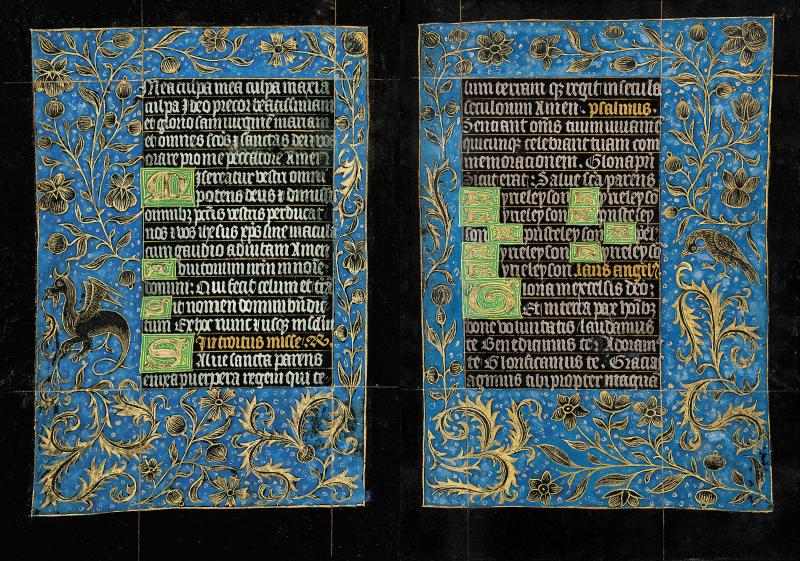 Mea culpa mea culpa maxia
culpa Ideo precor beatissimam
et gloriosam virginē mariam
et omnes scōs ⁊ sanctas dei vos
orare pro me peccatore Amen
Misereatur vestri omni
potens deus ⁊ dimissis
omnibꝫ pctīs vestris perducat
nos ⁊ vos ihesus xp̄s sine macula
cum gaudio ad vitam Amen
Adiutorium nrm̄ in noīe
domini: Qui fecit celum et t̄rā
Sit nomen domini bn̄dic
tum Ex hoc nunc ⁊ usqꝫ in sc̄lm
Introitus misse
Salue sancta parens
enixa puerpera regem qui ce
lum terram qꝫ regit in secula
seculorum Amen. psalmus.
Sentiant om̄s tuum iuuamē
quicumqꝫ celebrant tuam com
memorationem. Gloria pr̄i
Sicut erat: Salue sc̄a parens
Kyrieleyson Kyrieleyso
Kyrieleyson Xp̄isteley
son Xp̄isteleyson Xp̄iel
Kyrieleyson Kyrieleyso
Kyrieleyson Laus angel
Gloria in excelsis deo:
Et in terra pax hoībꝫ
bone voluntatis laudamus
te Benedicimus te Adoram
te Glorificamus te. Gracia
agimus tibi propter magna